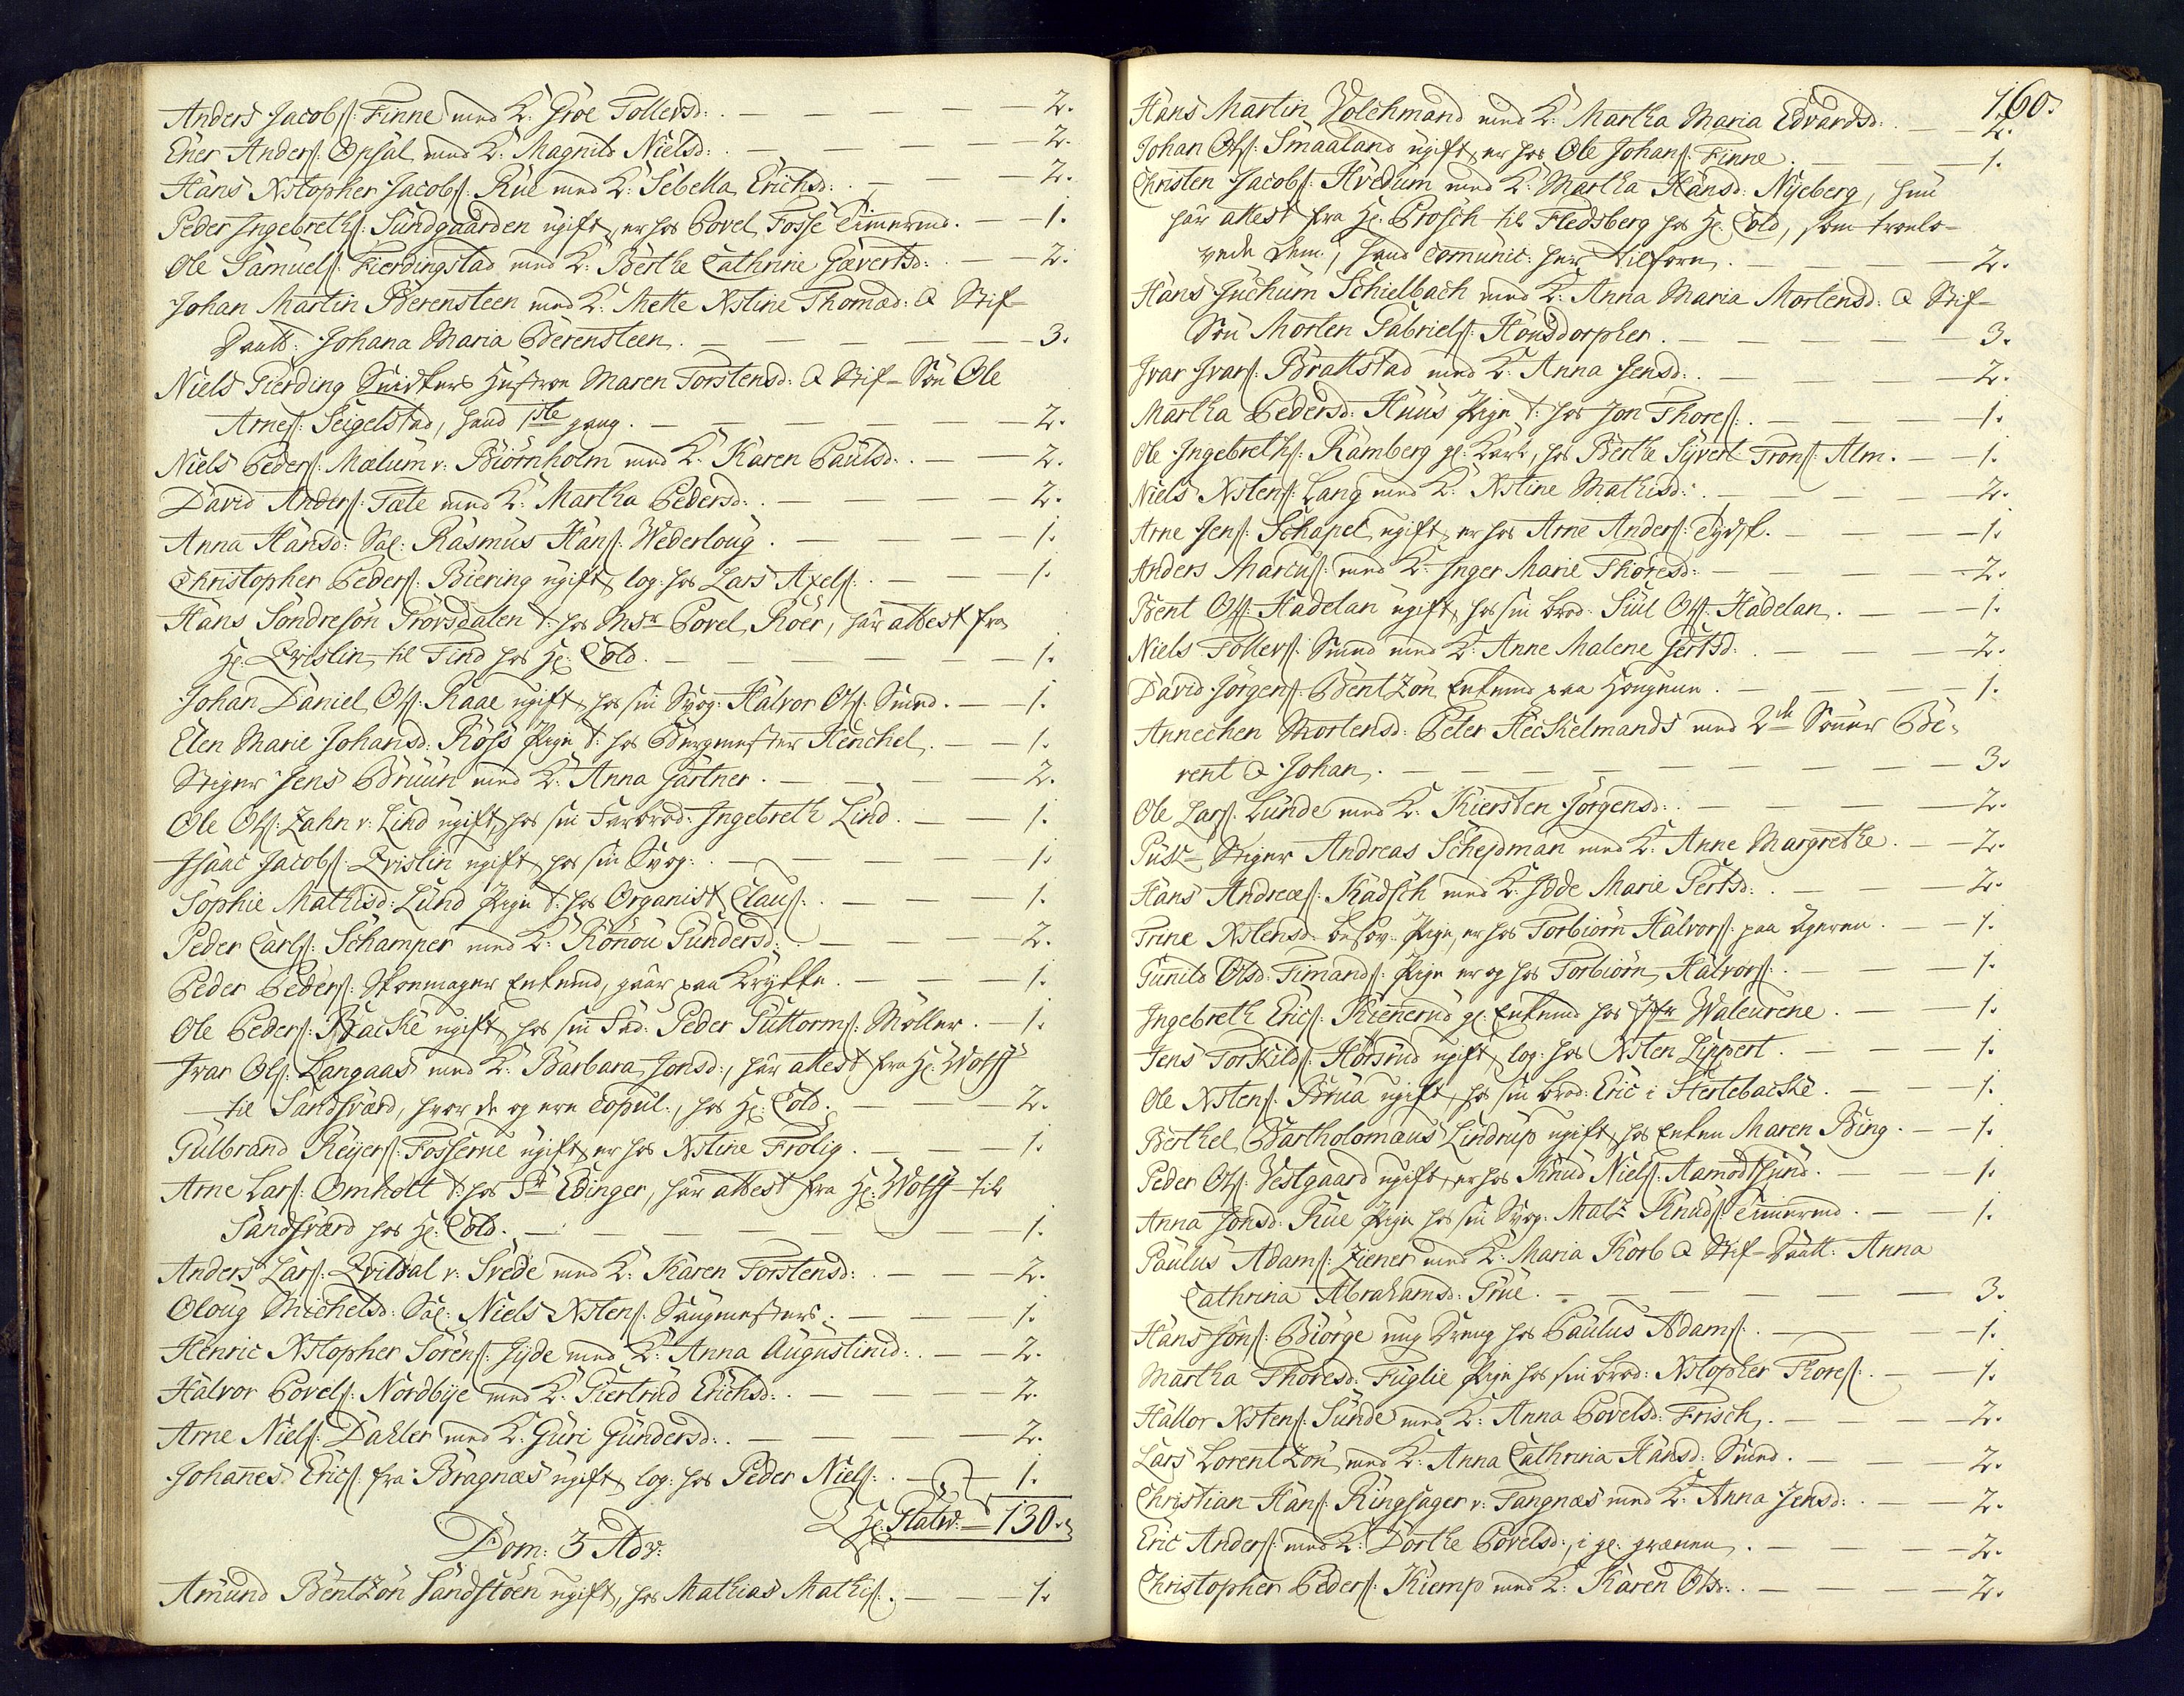 Anders Jacobſ: Finne med K: Groe Tollersd: . — — — — 2.
Ener Anderſ: Opsal med K: Magnild Nielsd: . — — — — 2.
Hans Xstopher Jacobſ: Rue med K: Sebella Erichsd: . — — — 2.
Peder Ingebrethſ: Sundgaarden ugift, er hos Povel Fosse Timermd. — — 1.
Ole Samuelſ: Fierdingstad med K: Berthe Cathrine Gævertsd: . — — 2.
Johan Martin Berensteen med K: Mette Xstine Thomæd: & Stif-
Daatt: Johana Maria Berensteen. — — — — — — 3.
Niels Gierding Snidkers Hustroe Maren Torstensd: & Stif-Sön Ole
Arneſ: Seigelstad, hand 1ste gang. — — — — — — 2.
Niels Pederſ: Mælum v: Biörnholm med K: Karen Paulsd: . — — 2.
David Anderſ: Tæte med K: Martha Pedersd: . — — — — 2.
Anna Hansd: Sal: Rasmus Hanſ: Wederloug . — — — — 1.
Christopher Pederſ: Biering ugift, log: hos Lars Axelſ: . — — — 1.
Hans Söndresön Prorsdalen t: hos Msr Povel Röer, har attest fra
Hr: Qvislin til Tind hos Hr: Cold. — — — — — — 1.
Johan Daniel Olſ: Raae ugift, hos sin Svog: Halvor Olſ: Smed. — — 1.
Elen Marie Johansd: Röſs Pige t: hos Bergmester Henchel. — — 1.
Stiger Jens Bruun med K: Anna Gärtner. — — — — 2.
Ole Olſ: Zahn v: Lind ugift, hos sin Farbrod: Ingebreth Lind. — — 1.
Isaac Jacobſ: Qvislin ugift, hos sin Svog: . — — — — 1.
Sophie Mathisd: Lund Pige t: hos Organist Clauſ: . — — — 1.
Peder Carlſ: Schamper med K: Rönou Gundersd: . — — — 2.
Peder Pederſ: Skoemager Enkemd, gaar paa Krykke. — — — 1.
Ole Pederſ: Backe ugift, hos sin Fad: Peder Guttormſ: Möller. — 1.
Ivar Olſ: Langaas med K: Barbara Jonsd:, har attest fra Hr: Wolff
til Sandsværd, hvor de og ere Copul:, hos Hr: Cold. — — — 2.
Gulbrand Reyerſ: Fosserne ugift, er hos Xstine Frölig. — — — 1.
Arne Larſ: Omholt t: hos Sr Edinger, har attest fra Hr: Wolff til
Sandsværd hos Hr: Cold. — — — — — — — 1.
Anders Larſ: Qvildal v: Svede med K: Karen Torstensd: . — — 2.
Oloug Michelsd: Sal: Niels Xstenſ: Saugmesters. — — — 1.
Henric Xstopher Sörenſ: Jyde med K: Anna Augustinid: . — — 2.
Halvor Povelſ: Nordbye med K: Giertrud Erichsd: . — — — 2.
Arne Nielſ: Dahler med K: Guri Gundersd: . — — — 2.
Johanes Ericſ: fra Bragnæs ugift, log: hos Peder Nielſ: . — 1.
Hr: Statw: — 130.
Dom: 3 Adv:
Amund Bentzön Sandstöen ugift, hos Mathias Mathiſ: . — — — 1.
160.
Hans Martin Volchmand med K: Martha Maria Edvardsd: . — 2.
Johan Olſ: Smaaland ugift, er hos Ole Johanſ: Finne. — — — 1.
Christen Jacobſ: Hvedum med K: Martha Hansd: Nyeberg, hun
har attest fra Hr: Brosch til Fledsberg hos Hr: Cold, som troelo-
vede dem, hand Comunic: her tilforn. — — — — 2.
Hans Juchum Schielbach med K: Anna Maria Mortensd: & Stif-
Sön Morten Gabrielſ: Honsdorpher. — — — — — 3.
Ivar Ivarſ: Brattstad med K: Anna Jensd: . — — — — 2.
Martha Pedersd: Huus Pige t: hos Jon Thoreſ: . — — — — 1.
Ole Ingebrethſ: Ramberg gl: Karl, hos Berthe Syvert Tronſ: Alm. — — 1.
Niels Xstenſ: Lang med K: Xstine Mathisd: . — — — — 2.
Arne Jenſ: Schapel ugift, er hos Arne Anderſ: Tydsk. — — — 1.
Anders Marcuſ: med K: Inger Marie Thoresd: — — — — 2.
Bent Olſ: Hadelan ugift, hos sin brod: Siul Olſ: Hadelan. — — 1.
Niels Tollevſ: Smed med K: Anne Malene Gertsd: . — — — 2.
David Jörgenſ: Bentzön Enkemd paa Hougene. — — — — 1.
Annechen Mortensd: Peter Heckelmands med 2de Sönner Be-
rent & Johan. — — — — — — — — 3.
Ole Larſ: Lunde med K: Kiersten Jörgensd: . — — — — 2.
Puk-Stiger Andreas Scheidman med K: Anne Margrethe. — — 2.
Hans Andreæſ: Kadsch med K: Idde Marie Gertsd: . — — — 2.
Trine Xstensd: besov: Pige, er hos Torbiörn Halvorſ: paa Ageren. — — 1.
Gunild Olsd: Timandſ: Pige er og hos Torbiörn Halvorſ: . — — 1.
Ingebreth Ericſ: Kienerud gl: Enkemd hos Jfr Waleurene. — — 1.
Jens Torkildſ: Horsrud ugift, log: hos Xsten Lippert. — — — 1.
Ole Xstenſ: Brua ugift, hos sin brod: Eric i Stertebacke. — — 1.
Berthel Bartholomæus Lindrup ugift, hos Enken Maren Bing. — 1.
Peder Olſ: Vestgaard ugift, er hos Knud Nielſ: Aamodtsund. — 1.
Anna Jonsd: Rue Pige hos sin Svog: Matz Knudſ: Timermd. — — 1.
Paulus Adamſ: Ziener med K: Maria Korb & Stif-Daatt: Anna
Cathrina Abrahamsd: Grue. — — — — — — 3.
Hans Jonſ: Biörge ung Dreng hos Paulus Adamſ: . — — — 1.
Martha Thoresd: Fuglie Pige hos sin brod: Xstopher Thoreſ: . — — 1.
Hallor Xstenſ: Sunde med K: Anna Povelsd: Frisch. — — — 2.
Lars Lorentzön med K: Anna Cathrina Hansd: Smed. — — — 2.
Christian Hanſ: Ringsager v: Tangnæs med K: Anna Jensd: . — — 2.
Eric Anderſ: med K: Dorthe Povelsd:, i gl: grænen. — — — 2.
Christopher Pederſ: Kiemp med K: Karen Olsd: . — — — 2.